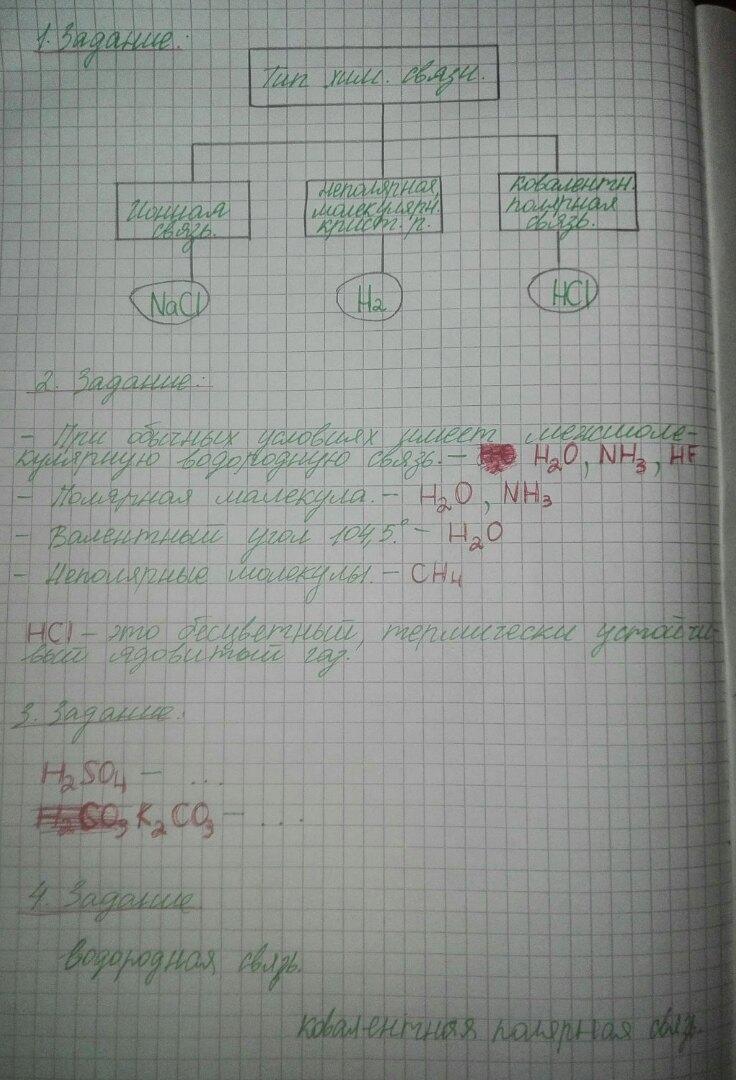 1. Задание:
Тип хим. связи.
Ионная
связь.
неполярная,
малекулярн.
крист. р.
ковалентн.
полярная
связь.
NaCl
H₂
HCl
2. Задание:
- При обычных условиях имеет межмоле-
кулярную водородную связь. - H₂O, NH₃, HF
- Полярная малекула. - H₂O, NH₃
- Валентный угол 104,5° - H₂O
- Неполярные молекулы. - CH₄
HCl - это бесцветный, термически устойчи-
вый ядовитый газ.
3. Задание:
H₂SO₄ - ...
K₂CO₃ - ...
4. Задание
водородная связь.
ковалентная полярная связь.